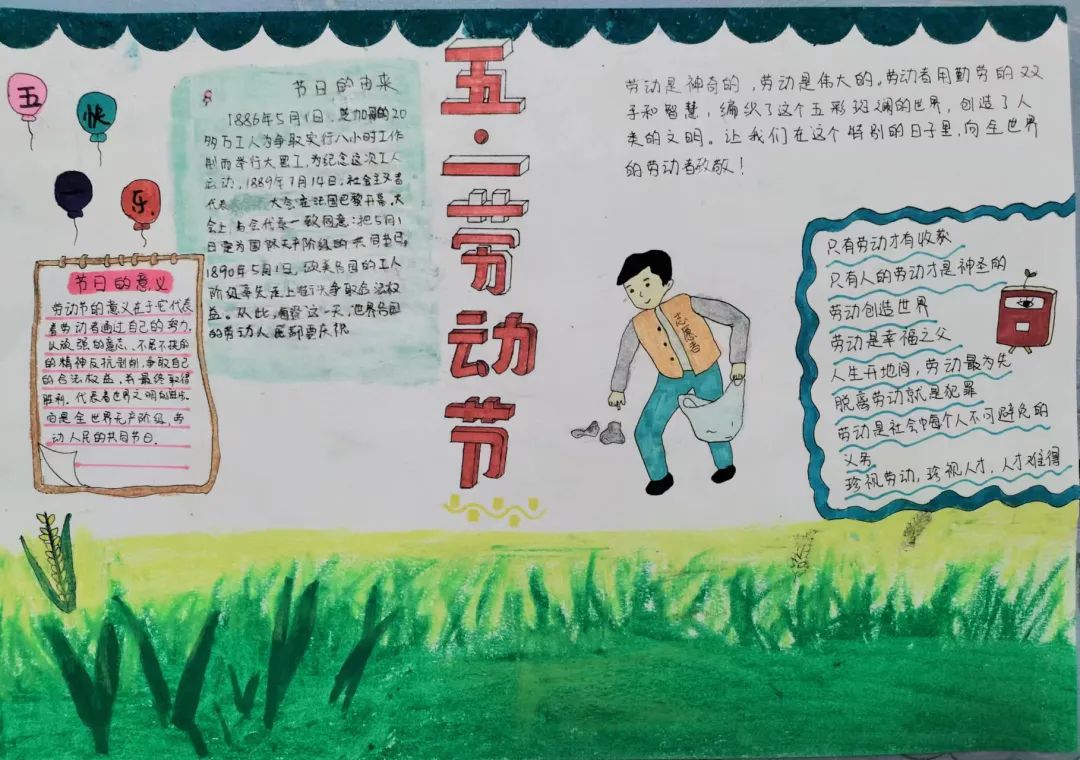 五
快
一
乐
节日的由来
1886年5月1日,芝加哥的20
多万工人为争取实行八小时工作
制而举行大罢工,为纪念这次工人
运动,1889年7月14日,社会主义者
代表大会在法国巴黎开幕,大
会上,与会代表一致同意:把5月1
日定为国际无产阶级的共同节日。
1890年5月1日,欧美各国的工人
阶级率先走上街头争取合法权
益。从此,每逢这一天,世界各国
的劳动人民都要庆祝
节日的意义
劳动节的意义在于它代表
着劳动者通过自己的努力,
以顽强的意志、不屈不挠的
的精神反抗剥削,争取自己
的合法权益,并最终取得
胜利。代表着世界文明的进步。
向是全世界无产阶级、劳
动人民的共同节日。
五·一劳动节
劳动是神奇的,劳动是伟大的。劳动者用勤劳的双
手和智慧,编织了这个五彩斑斓的世界,创造了人
类的文明。让我们在这个特别的日子里,向全世界
的劳动者致敬!
志愿者
只有劳动才有收获
只有人的劳动才是神圣的
劳动创造世界
劳动是幸福之父
人生开地间,劳动最为先
脱离劳动就是犯罪
劳动是社会中每个人不可避免的
义务
珍视劳动,珍视人才,人才难得